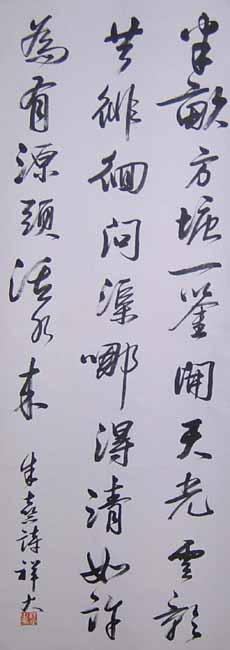 半畝方塘一鑒開天光雲影
共徘徊問渠哪得清如許
為有源頭活水來
朱熹詩祥大